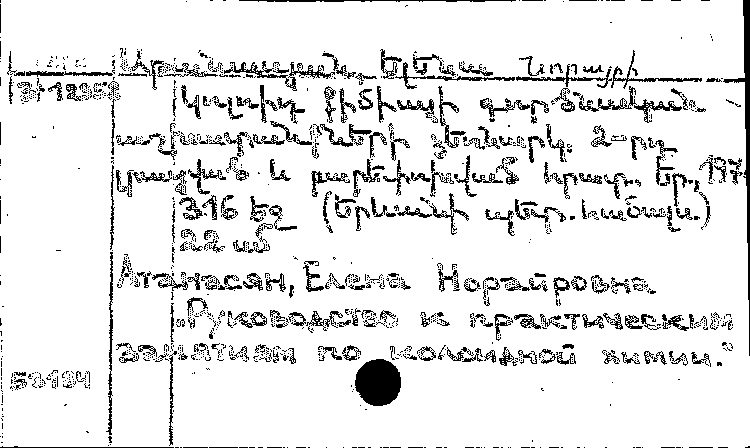 Աթանասյան, Ելենա Նորայրի
Կոլոիդ քիմիայի գործնական
աշխատանքների ձեռնարկ. 2-րդ
լրացված և բարեփոխված հրատ. Եր., 197
316 էջ (Երևանի պետ. համալս.)
22 սմ
Атанасян, Елена Норайровна
„Руководство к практическим
занятиям по колоидной химии."